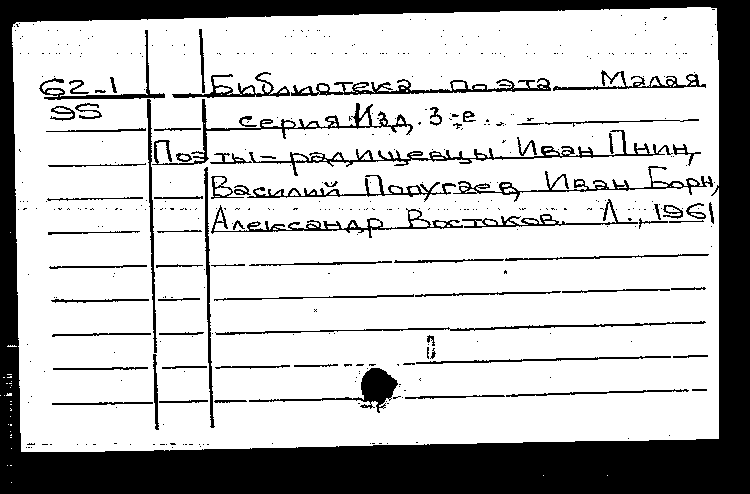 62-1 Библиотека поэта. Малая
95 серия Изд. 3-е.
Поэты-радищевцы. Иван Пнин,
Василий Попугаев, Иван Борн,
Александр Востоков. Л., 1961